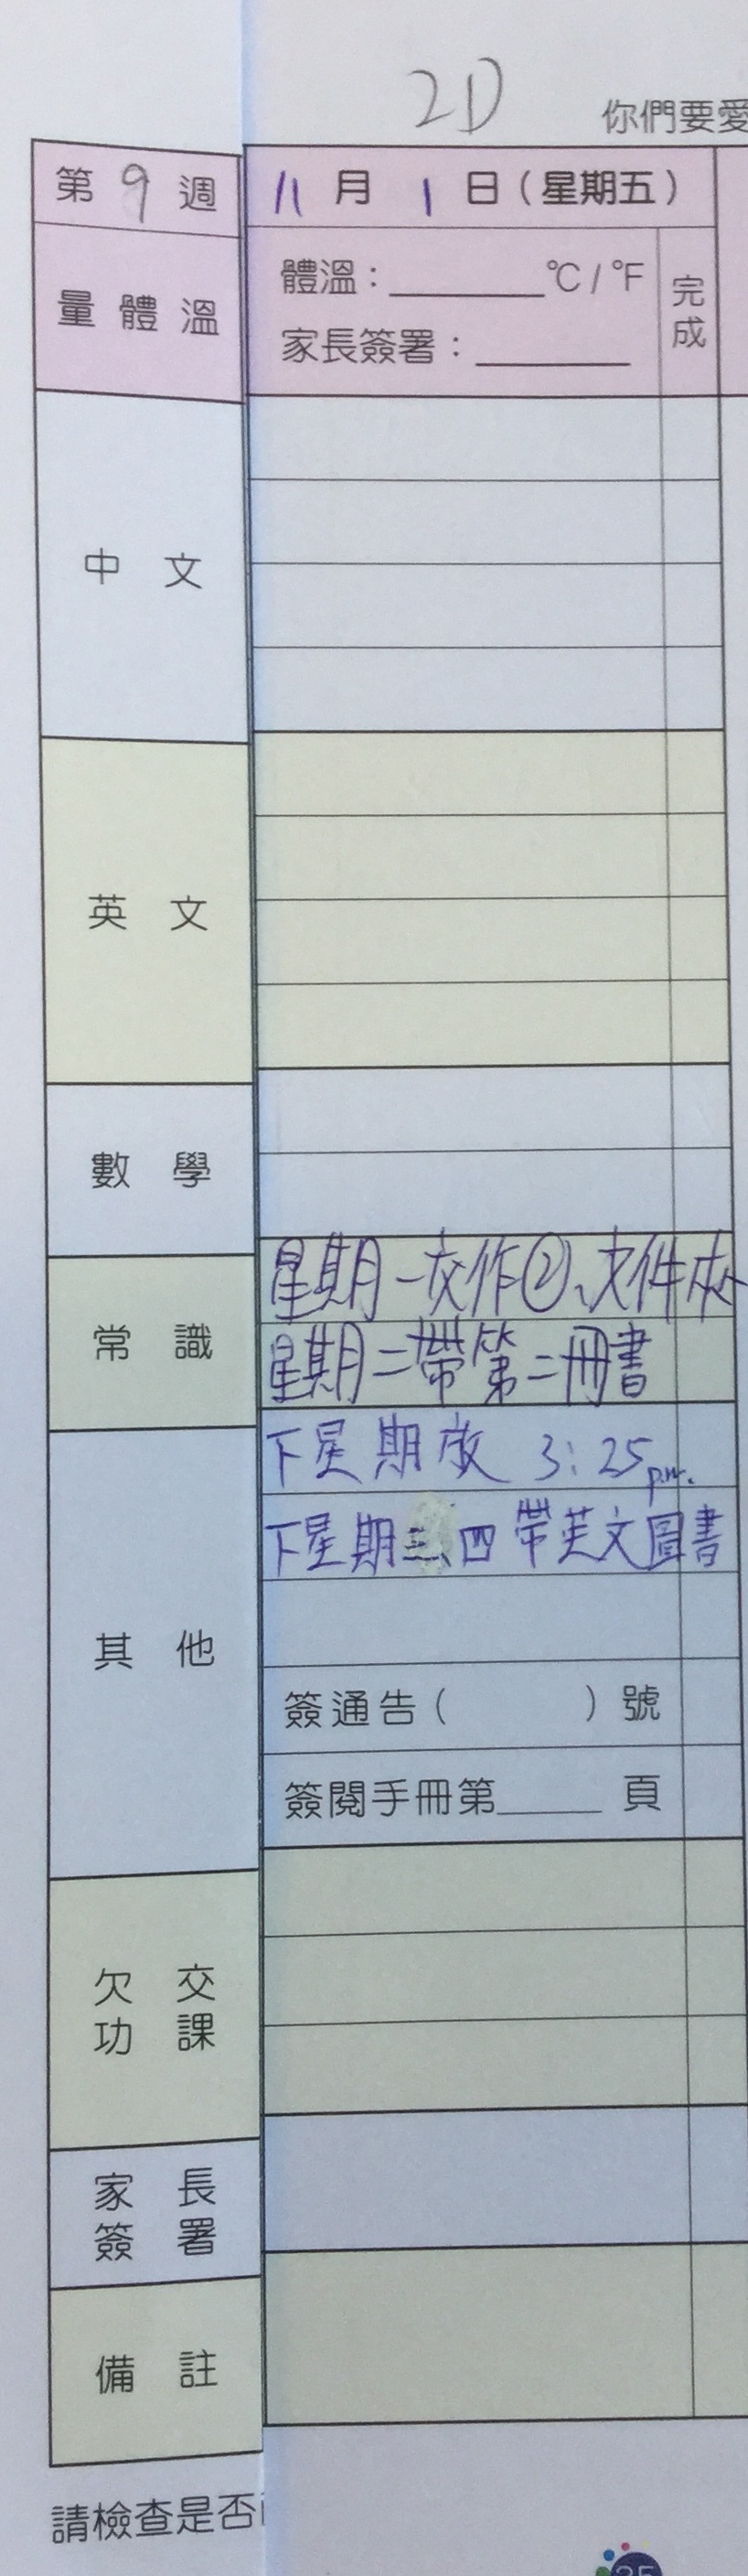 2D
你們要愛
第 9 週
11 月 1 日（星期五）
量體溫
體溫：______℃/℉
家長簽署：______
完成
中文
英文
數學
常識
星期一交作②、文件夾
星期二帶第二冊書
其他
下星期放 3:25 p.m.
下星期三、四帶英文圖書
簽通告（　　）號
簽閱手冊第_____頁
欠交功課
家長簽署
備註
請檢查是否